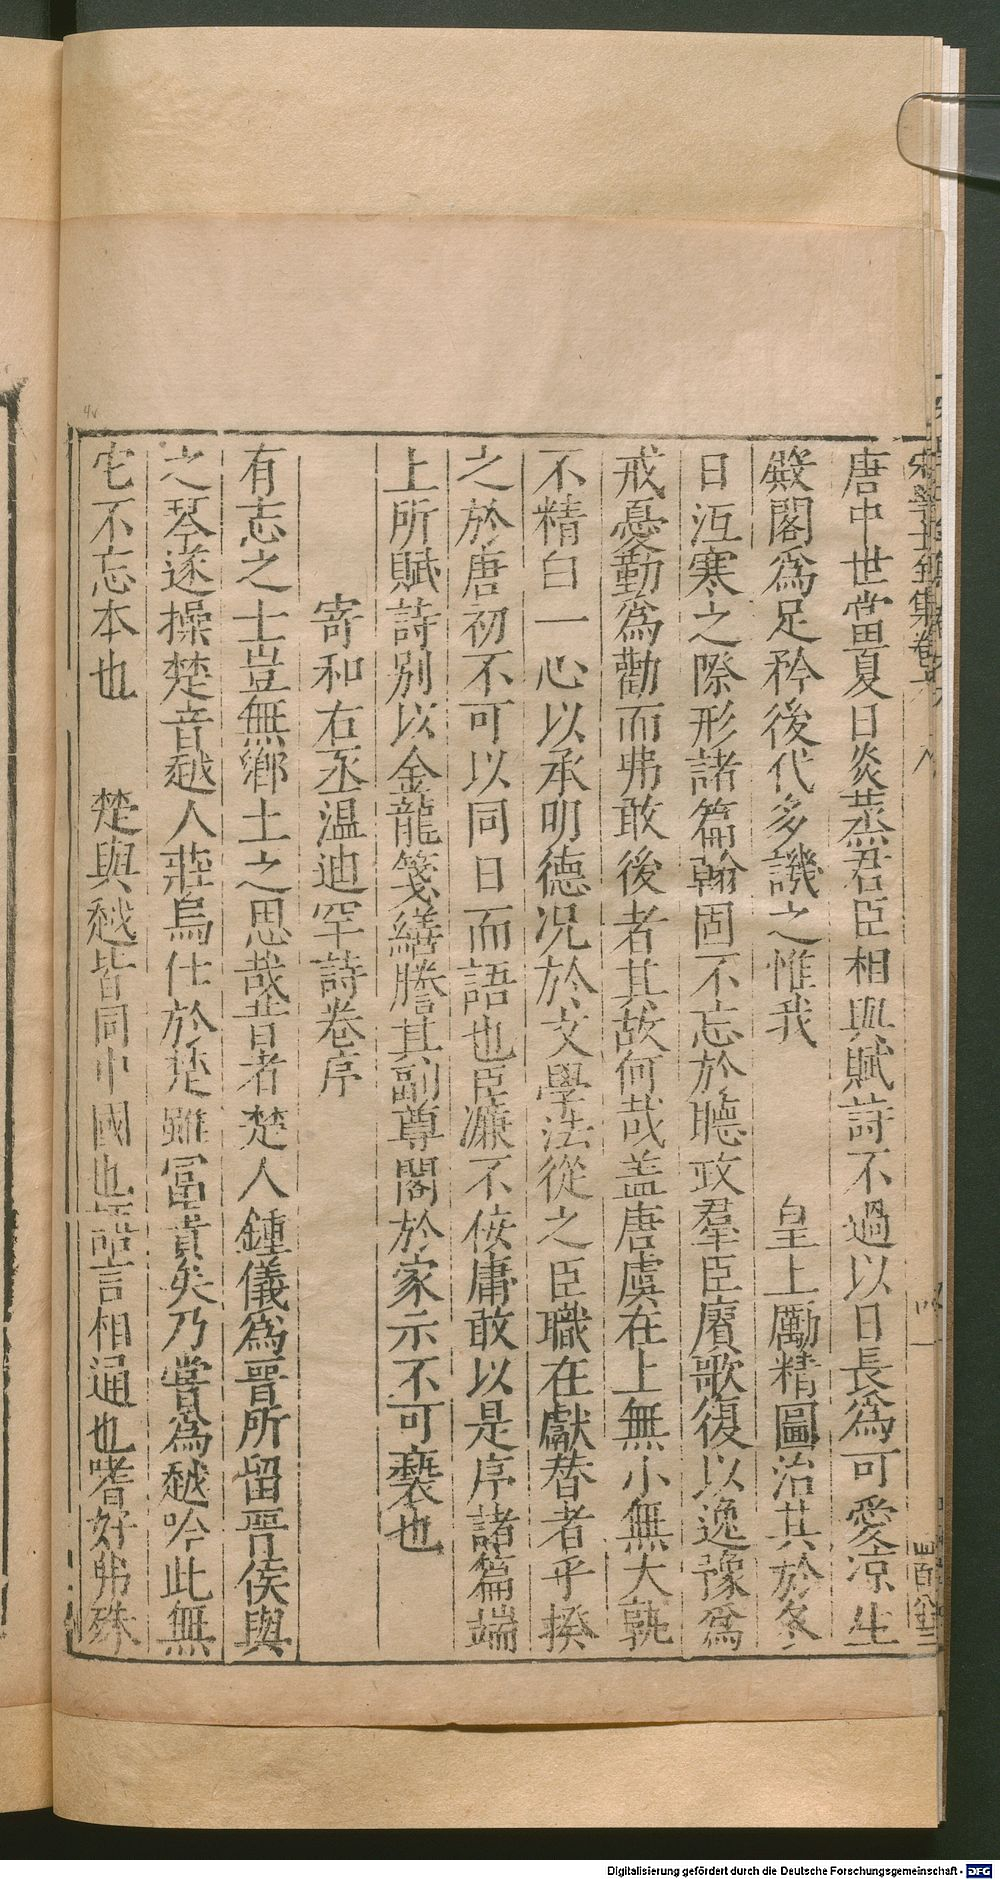 唐中世當夏日炎蒸君臣相與賦詩不過以日長爲可愛凉生
殿閣爲足矜後代多譏之惟我　　皇上勵精圖治其於冬
日沍寒之際形諸篇翰固不忘於聽政羣臣賡歌復以逸豫爲
戒憂勤爲勸而弗敢後者其故何哉盖唐虞在上無小無大孰
不精白一心以承明德况於文學法從之臣職在獻替者乎揆
之於唐初不可以同日而語也臣濂不佞庸敢以是序諸篇端
上所賦詩別以金龍箋繕謄其副尊閣於家示不可褻也
寄和右丞温迪罕詩卷序
有志之士豈無鄉土之思哉昔者楚人鍾儀爲晋所留晋侯與
之琴遂操楚音越人莊舄仕於楚雖冨貴矣乃嘗爲越吟此無
它不忘本也　　楚與越皆同中國也語言相通也嗜好弗殊
Digitalisierung gefördert durch die Deutsche Forschungsgemeinschaft - DFG